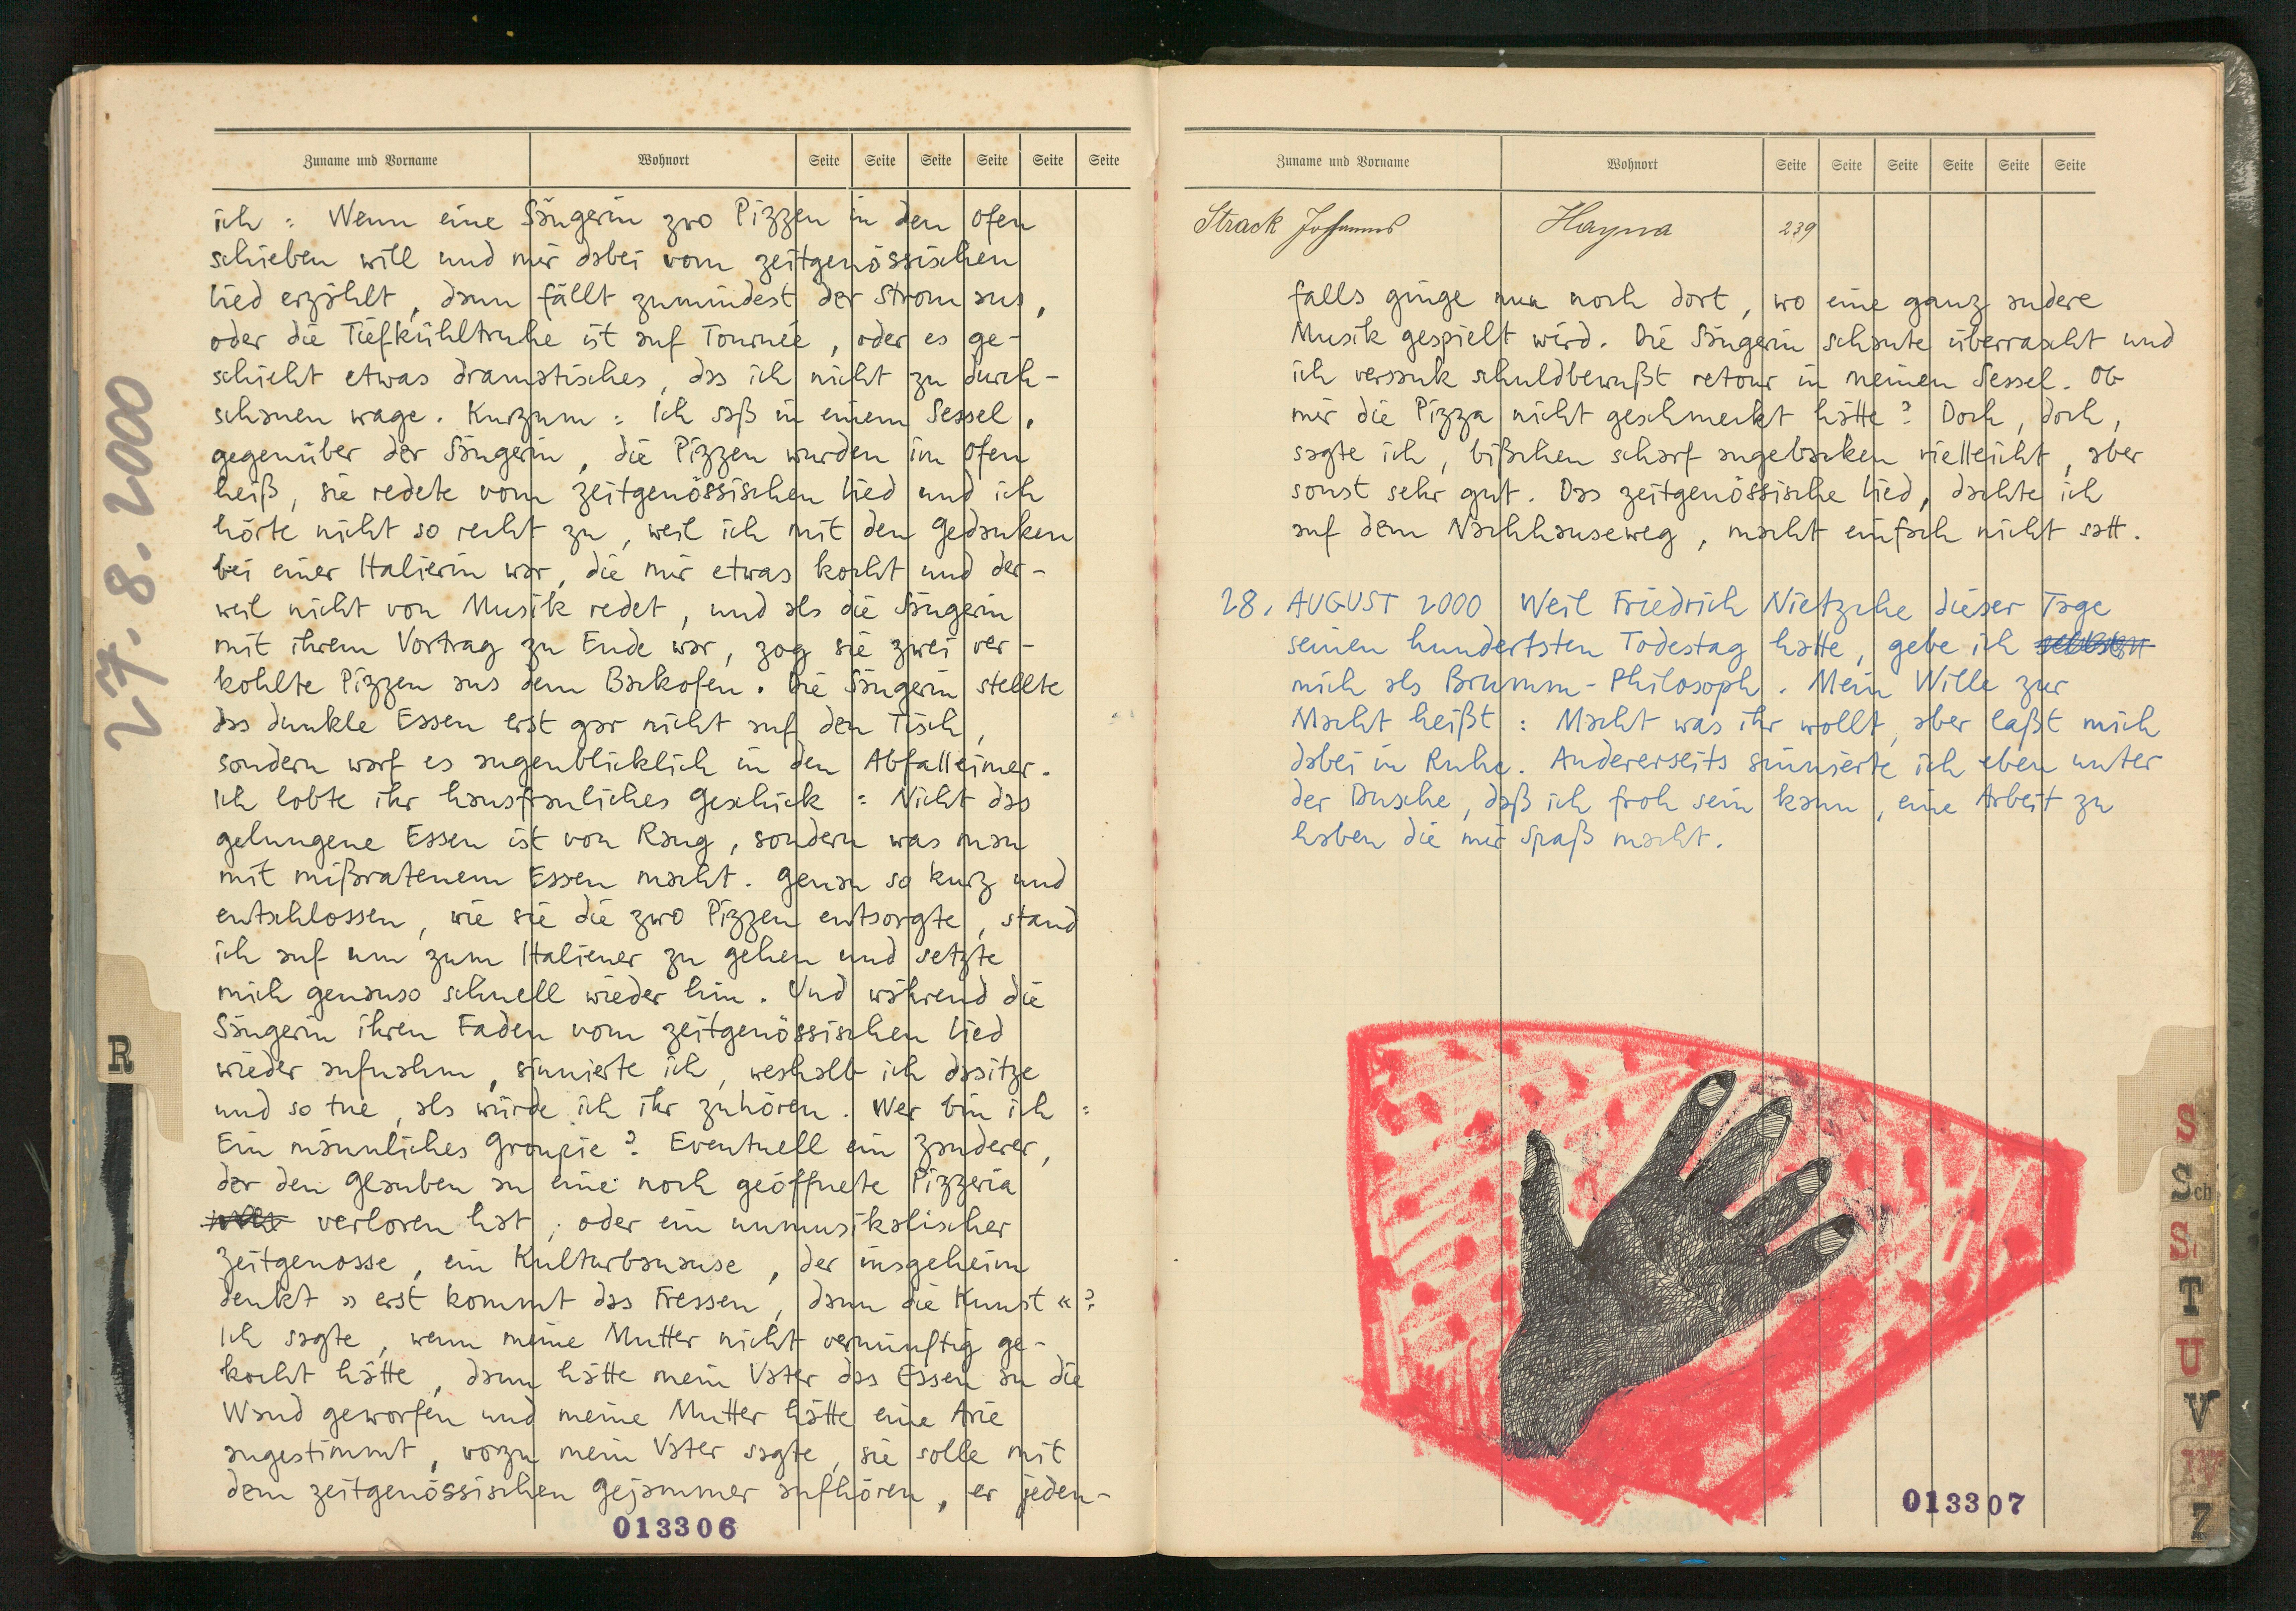 27.8.2000
Zuname und Vorname Wohnort Seite Seite Seite Seite Seite Seite
ich: Wenn eine Sängerin zwo Pizzen in den Ofen
schieben will und mir dabei vom zeitgenössischen
Lied erzählt, dann fällt zumindest der Strom aus,
oder die Tiefkühltruhe ist auf Tournée, oder es ge-
schieht etwas dramatisches, das ich nicht zu durch-
schauen wage. Kurzum: Ich saß in einem Sessel,
gegenüber der Sängerin, die Pizzen wurden im Ofen
heiß, sie redete vom zeitgenössischen Lied und ich
hörte nicht so recht zu, weil ich mit den Gedanken
bei einer Italierin war, die mir etwas kocht und der-
weil nicht von Musik redet, und als die Sängerin
mit ihrem Vortrag zu Ende war, zog sie zwei ver-
kohlte Pizzen aus dem Backofen. Die Sängerin stellte
das dunkle Essen erst gar nicht auf den Tisch,
sondern warf es augenblicklich in den Abfalleimer.
Ich lobte ihr hausfrauliches Geschick: Nicht das
gelungene Essen ist von Rang, sondern was man
mit mißratenem Essen macht. Genau so kurz und
entschlossen, wie sie die zwo Pizzen entsorgte, stand
ich auf um zum Italiener zu gehen und setzte
mich genauso schnell wieder hin. Und während die
Sängerin ihren Faden vom zeitgenössischen Lied
wieder aufnahm, sinnierte ich, weshalb ich dasitze
und so tue, als würde ich ihr zuhören. Wer bin ich:
Ein männliches Groupie? Eventuell ein Zauderer,
der den Glauben an eine noch geöffnete Pizzeria
verloren hat; oder ein unmusikalischer
Zeitgenosse, ein Kulturbanause, der insgeheim
denkt »erst kommt das Fressen, dann die Kunst«?
Ich sagte, wenn meine Mutter nicht vernünftig ge-
kocht hätte, dann hätte mein Vater das Essen an die
Wand geworfen und meine Mutter hätte eine Arie
angestimmt, wozu mein Vater sagte, sie solle mit
dem zeitgenössischen Gejammer aufhören, er jeden-
013306
R
Zuname und Vorname Wohnort Seite Seite Seite Seite Seite Seite
Strack Johannes Hayna 239
falls ginge nun noch dort, wo eine ganz andere
Musik gespielt wird. Die Sängerin schaute überrascht und
ich versank schuldbewußt retour in meinen Sessel. Ob
mir die Pizza nicht geschmeckt hätte? Doch, doch,
sagte ich, bißchen scharf angebacken vielleicht, aber
sonst sehr gut. Das zeitgenössische Lied, dachte ich
auf dem Nachhauseweg, macht einfach nicht satt.
28. AUGUST 2000 Weil Friedrich Nietzsche dieser Tage
seinen hundertsten Todestag hatte, gebe ich
mich als Brumm-Philosoph. Mein Wille zur
Macht heißt: Macht was ihr wollt, aber laßt mich
dabei in Ruhe. Andererseits sinnierte ich eben unter
der Dusche, daß ich froh sein kann, eine Arbeit zu
haben die mir Spaß macht.
013307
S
Sch
St
T
U
V
W
Z